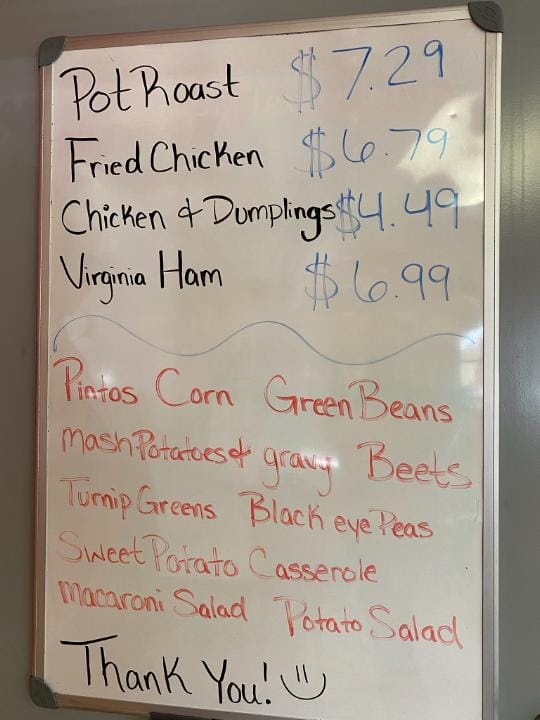 Pot Roast $7.29
Fried Chicken $6.79
Chicken & Dumplings $4.49
Virginia Ham $6.99
Pintos Corn Green Beans
Mash Potatoes & gravy Beets
Turnip Greens Black eye Peas
Sweet Potato Casserole
Macaroni Salad Potato Salad
Thank You!